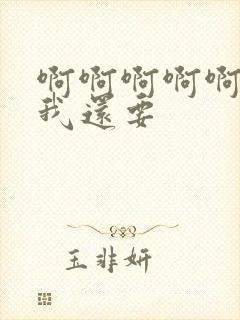 啊啊啊啊啊
我還要
玉非妍